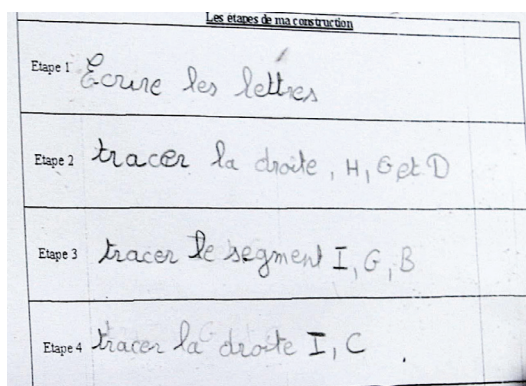 Les étapes de ma construction
Etape 1 Ecrire les lettres
Etape 2 tracer la droite, H, G et D
Etape 3 tracer le segment I, G, B
Etape 4 tracer la droite I, C.